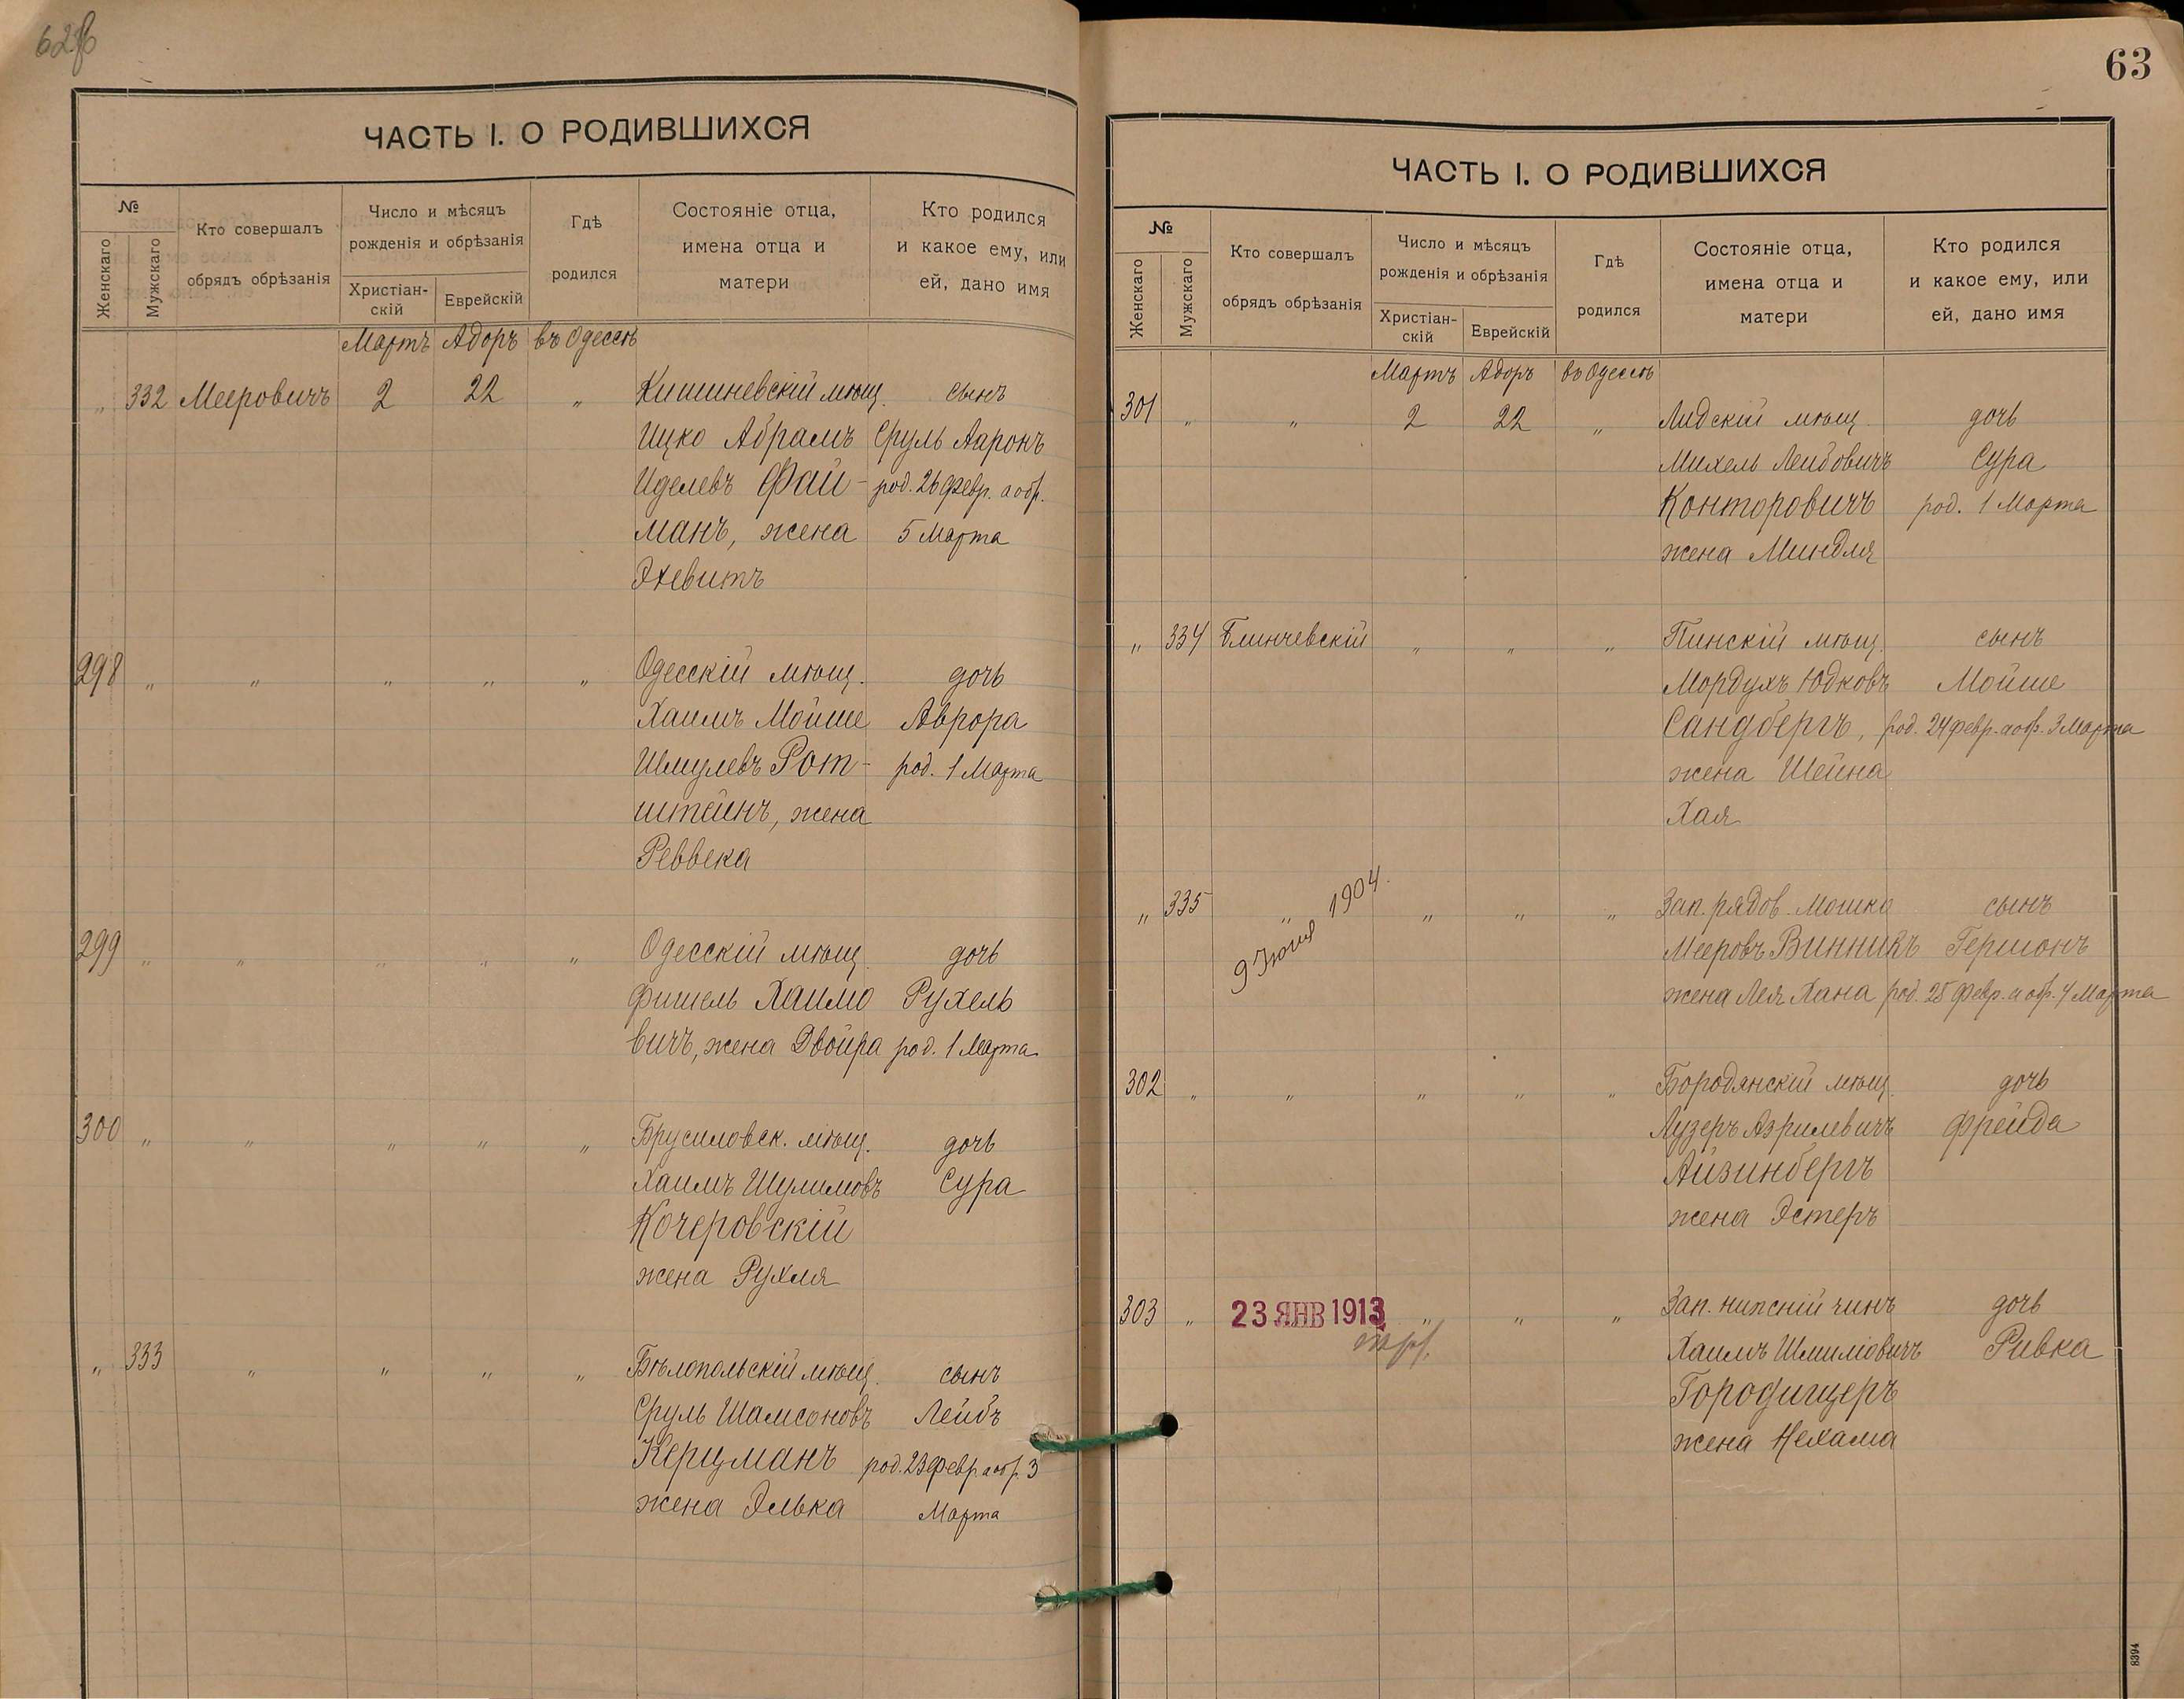 ЧАСТЬ I. О РОДИВШИХСЯ
№
Женскаго
Мужскаго
Кто совершалъ
обрядъ обрѣзанія
Число и мѣсяцъ
рожденія и обрѣзанія
Христіан-
скій
Еврейскій
Гдѣ
родился
Состояніе отца,
имена отца и
матери
Кто родился
и какое ему, или
ей, дано имя
Мартъ Адоръ въ Одессѣ
„ 332 Мееровичъ 2 22 „ Кишиневскій мѣщ. сынъ
Ицко Абрамъ Сруль Ааронъ
Иделевъ Фай- род. 26 Февр. а обр.
манъ, жена 5 Марта
Эхевитъ
298 „ „ „ „ „ Одесскій мѣщ. дочь
Хаимъ Мойше Аврора
Шмулевъ Рот- род. 1 Марта
штейнъ, жена
Реввека
299 „ „ „ „ „ Одесскій мѣщ. дочь
Фишель Хаимо Рухель
вичъ, жена Двойра род. 1 Марта
300 „ „ „ „ „ Брусиловск. мѣщ. дочь
Хаимъ Шулимовъ Сура
Кочеровскій
жена Рухля
„ 333 „ „ „ „ Бѣлопольскій мѣщ. сынъ
Сруль Шамсоновъ Лейбъ
Керцманъ род. 23 Февр а обр. 3
жена Элька Марта
63
ЧАСТЬ I. О РОДИВШИХСЯ
№
Женскаго
Мужскаго
Кто совершалъ
обрядъ обрѣзанія
Число и мѣсяцъ
рожденія и обрѣзанія
Христіан-
скій
Еврейскій
Гдѣ
родился
Состояніе отца,
имена отца и
матери
Кто родился
и какое ему, или
ей, дано имя
Мартъ Адоръ въ Одессѣ
301 „ „ 2 22 „ Лидскій мѣщ. дочь
Михель Лейбовичъ Сура
Конторовичъ род. 1 Марта
жена Миндля
„ 334 Блинчевскій „ „ „ Пинскій мѣщ. сынъ
Мордухъ Юдковъ Мойше
Сандбергъ, род. 24 февр. а обр. 3 Марта
жена Шейна
Хая
„ 335 „ „ „ „ Зап. рядов. Мошко сынъ
9 Іюня 1904.
Мееровъ Винникъ Гершонъ
жена Лея Хана род. 25 Февр. а обр. 4 Марта
302 „ „ „ „ „ Бородянскій мѣщ. дочь
Лузеръ Азрилевичъ Фрейда
Айзинбергъ
жена Эстеръ
303 „ 23 ЯНВ 1913 „ „ „ Зап. нижній чинъ дочь
Хаимъ Шмиліовичъ Ривка
Городищеръ
жена Нехама
8394